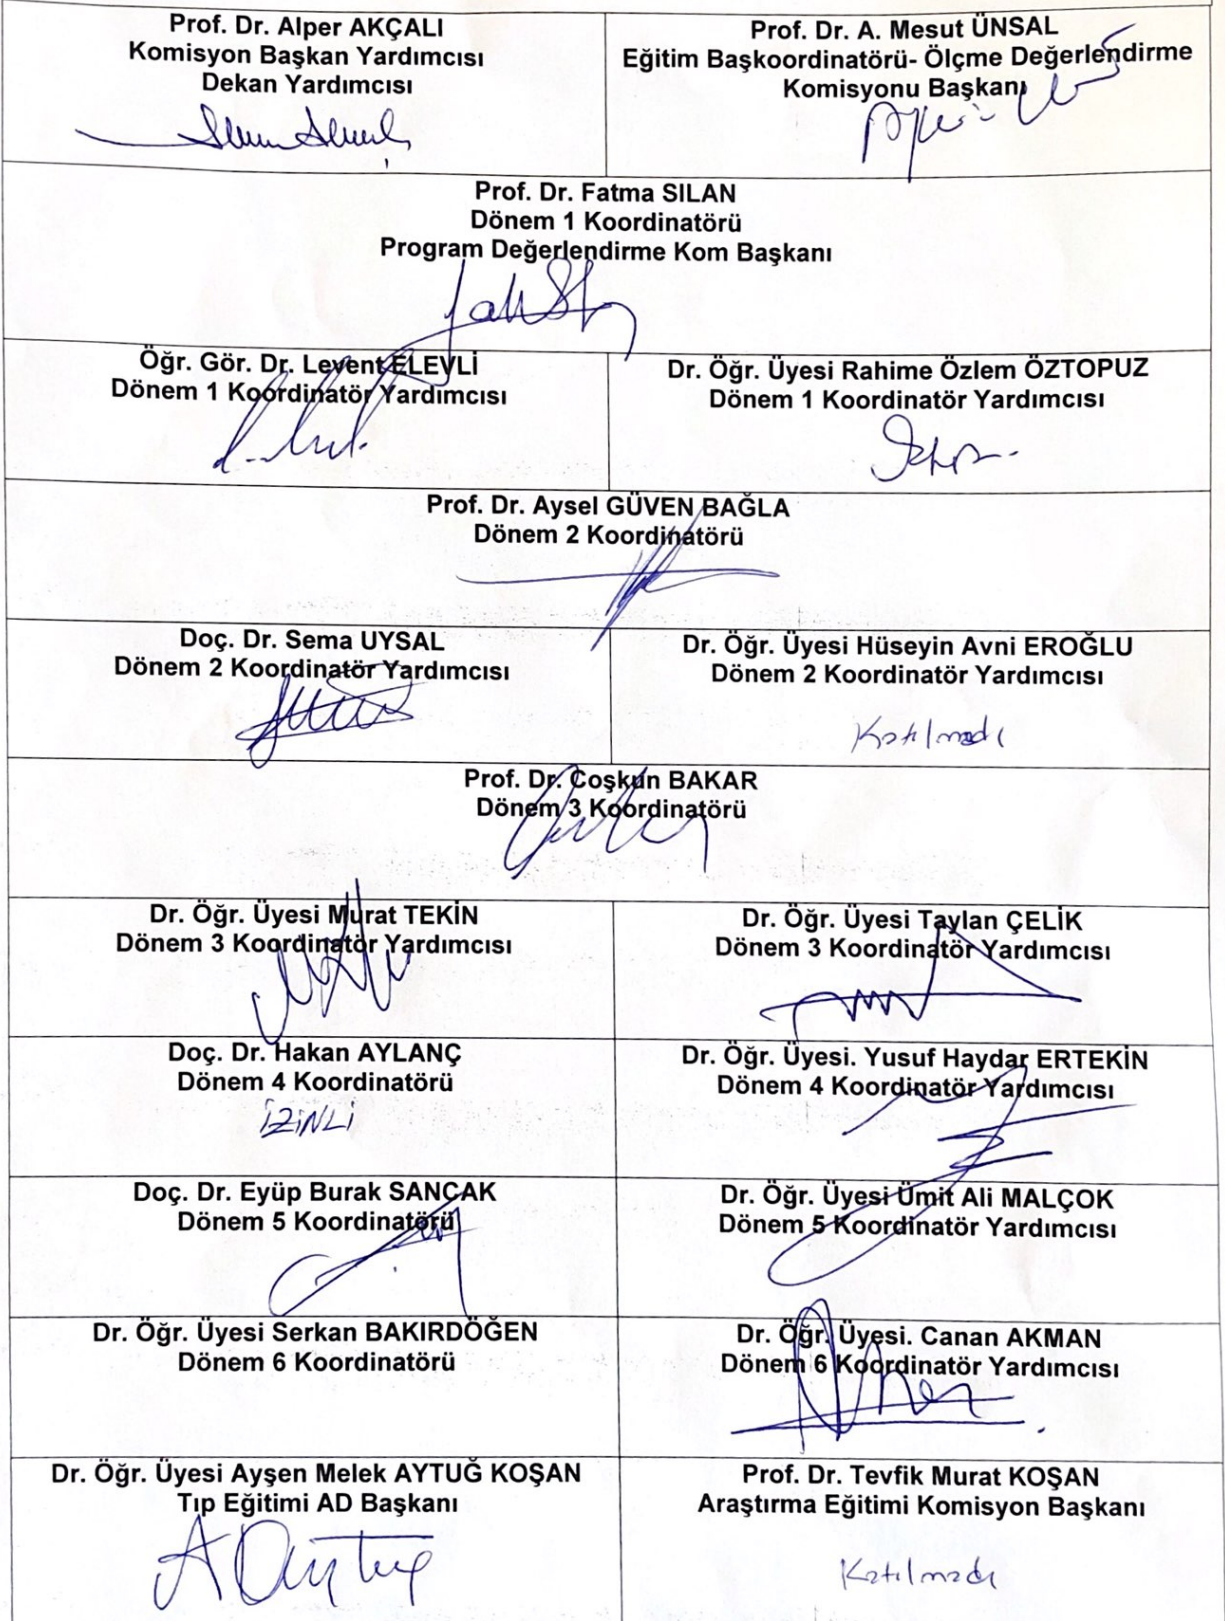 Prof. Dr. Alper AKÇALI
Komisyon Başkan Yardımcısı
Dekan Yardımcısı
Prof. Dr. A. Mesut ÜNSAL
Eğitim Başkoordinatörü- Ölçme Değerlendirme
Komisyonu Başkanı
Prof. Dr. Fatma SILAN
Dönem 1 Koordinatörü
Program Değerlendirme Kom Başkanı
Öğr. Gör. Dr. Levent ELEVLİ
Dönem 1 Koordinatör Yardımcısı
Dr. Öğr. Üyesi Rahime Özlem ÖZTOPUZ
Dönem 1 Koordinatör Yardımcısı
Prof. Dr. Aysel GÜVEN BAĞLA
Dönem 2 Koordinatörü
Doç. Dr. Sema UYSAL
Dönem 2 Koordinatör Yardımcısı
Dr. Öğr. Üyesi Hüseyin Avni EROĞLU
Dönem 2 Koordinatör Yardımcısı
Katılmadı
Prof. Dr. Coşkun BAKAR
Dönem 3 Koordinatörü
Dr. Öğr. Üyesi Murat TEKİN
Dönem 3 Koordinatör Yardımcısı
Dr. Öğr. Üyesi Taylan ÇELİK
Dönem 3 Koordinatör Yardımcısı
Doç. Dr. Hakan AYLANÇ
Dönem 4 Koordinatörü
İZİNLİ
Dr. Öğr. Üyesi. Yusuf Haydar ERTEKİN
Dönem 4 Koordinatör Yardımcısı
Doç. Dr. Eyüp Burak SANCAK
Dönem 5 Koordinatörü
Dr. Öğr. Üyesi Ümit Ali MALÇOK
Dönem 5 Koordinatör Yardımcısı
Dr. Öğr. Üyesi Serkan BAKIRDÖĞEN
Dönem 6 Koordinatörü
Dr. Öğr. Üyesi. Canan AKMAN
Dönem 6 Koordinatör Yardımcısı
Dr. Öğr. Üyesi Ayşen Melek AYTUĞ KOŞAN
Tıp Eğitimi AD Başkanı
Prof. Dr. Tevfik Murat KOŞAN
Araştırma Eğitimi Komisyon Başkanı
Katılmadı